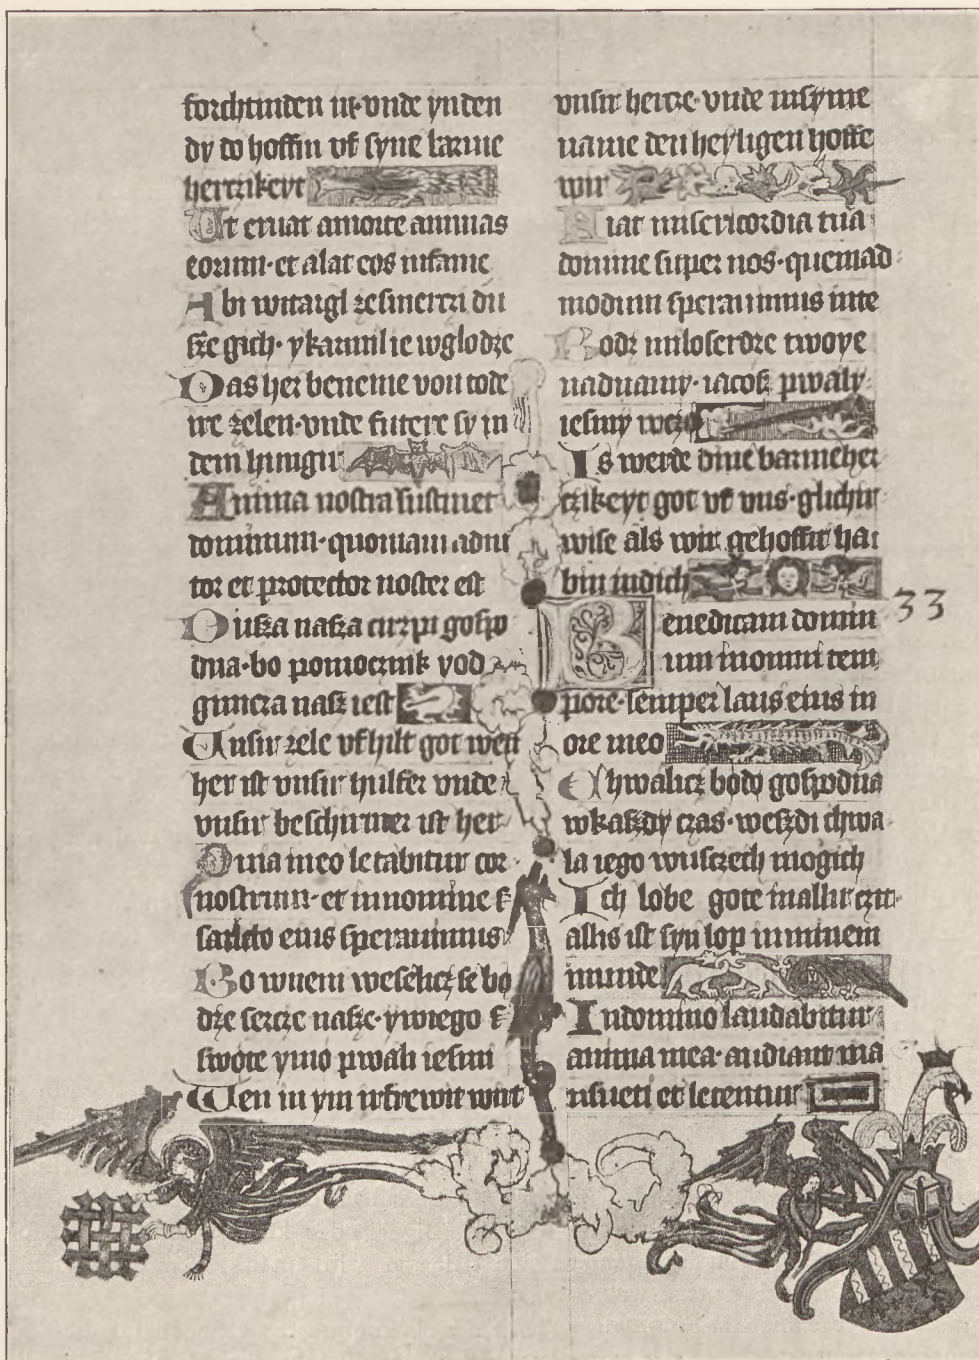 forchtinden in· vnde ynden
dy do hoffin vf syne barme
herczikeyt
Ut eruat amorte animas
eorum· et alat eos infame
Abi witargl zesmerczi du
sze gich· ykarmil ie wglodze
Das her beneme von tode
ire zelen· vnde furere sy in
dem hungir
Anima nostra sustinet
dominum· quoniam adiu
tor et protector noster est
Dusza nasza cirzpi gospo
dna· bo pomocznik yod
guncza nasz iest
Unsir zele vfhilt got wen
her ist vnsir hulfer vnde
vnsir beschirmer ist her
Quia meo letabitur cor
nostrum· et innomine
sancto eius sperauimus
Bo wnem weselicz se bo
dze sercze nasze· ywiego
swote ymo pwali iesmi
Wen in ym irfrewit wirt
vnsir hercze· vnde insyme
name den heyligen hoffe
wir
Fiat misericordia tua
domine super nos· quemad
modum sperauimus inte
Bodz miloserdze twoye
naduamy· iacosz pwaly
iesmy wezo
Is werde dine barmeher
czikeyt got vf vns· glichir
wise als wir gehoffit ha
bin indich
33
Benedicam domin
um inomni tem
pore· semper laus eius in
ore meo
Chwalicz bodo gospodna
wkaszdy czas· weszdi chwa
la iego wusczech mogich
Ich lobe gote inallir czit
allis ist syn lop inminem
munde
Indomino laudabitur
anima mea· audiant ma
nsueti et letentur